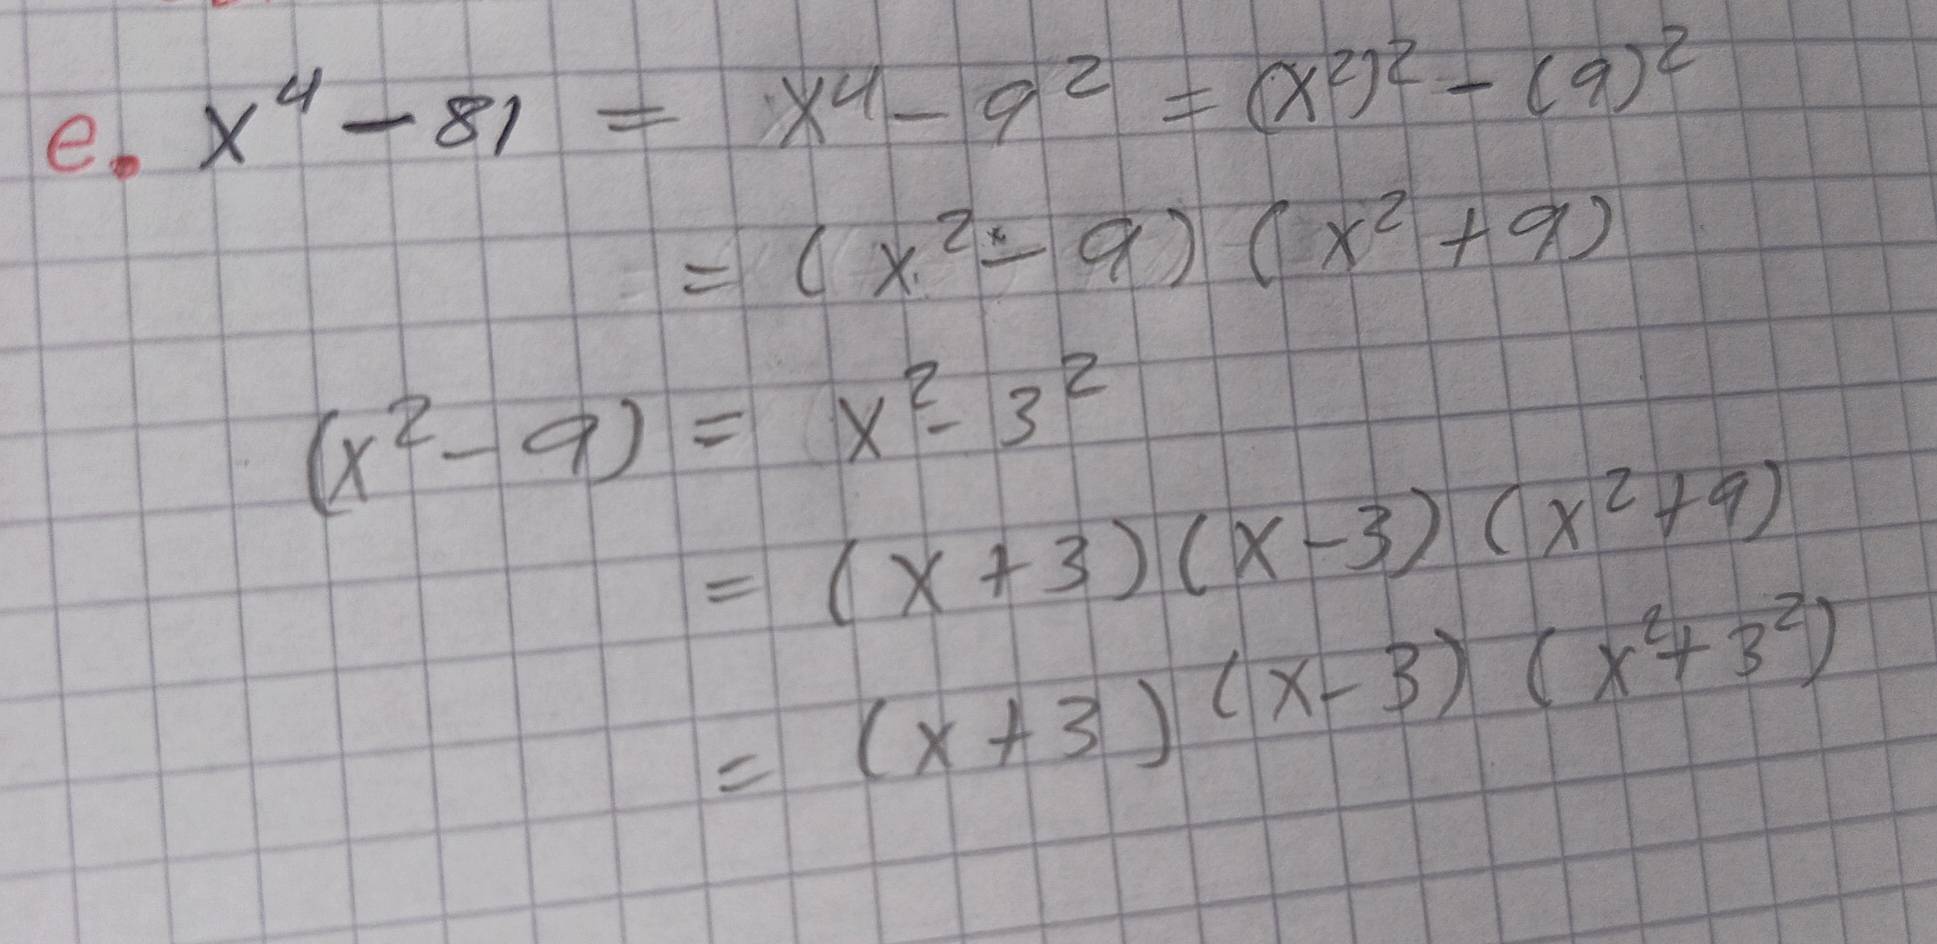 e. x⁴ - 81 = x⁴ - 9² = (x²)² - (9)²
= (x² - 9) (x² + 9)
(x² - 9) = x² - 3²
= (x + 3) (x - 3) (x² + 9)
= (x + 3) (x - 3) (x² + 3²)